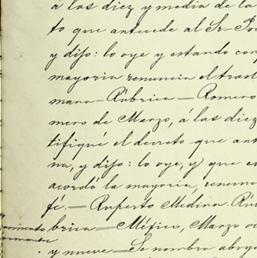 á las diez y media de la
to que antecede al Sr. Pro
y dijo: lo oye y estando con
mayoría renuncia el tras
mano - Rúbrica - Romero
mero de Marzo, á las diez
tifiqué el decreto que ant
na, y dijo: lo oye, y que e
acordó la mayoría, renun
fé. - Ruperto Medina Rú
brica - México, Marzo oc
y nueve - Se nombra aboga